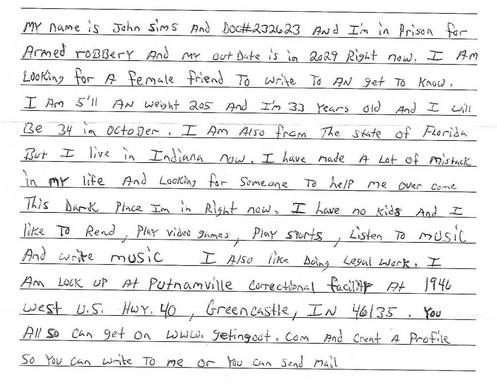 MY name is John Sims And DOC#232623 And I'm in Prison for
Armed robbery And my out Date is in 2029 Right now. I Am
Looking for A female friend To write To AN get To Know.
I Am 5'11 AN weight 205 And I'm 33 Years old And I will
Be 34 in October. I Am Also from The state of Florida
But I live in Indiana now. I have made A Lot of mistack
in my life And Looking for Someone To help me over come
This Dark Place Im in Right now. I have no kids And I
like To Read, Play video games, Play sports, Listen To music
And write music I Also like Doing Legal work. I
Am Lock up At Putnamville correctional facility At 1946
west U.S. Hwy. 40, Greencastle, IN 46135. You
All so can get on www. getingout. Com And Creat A Profile
So You can write To me or You can send mail